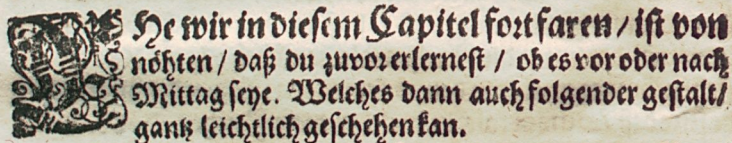 EHe wir in diesem Capitel fortfaren / ist von
nöhten / daß du zuvor erlernest / ob es vor oder nach
Mittag seye. Welches dann auch folgender gestalt /
gantz leichtlich geschehen kan.